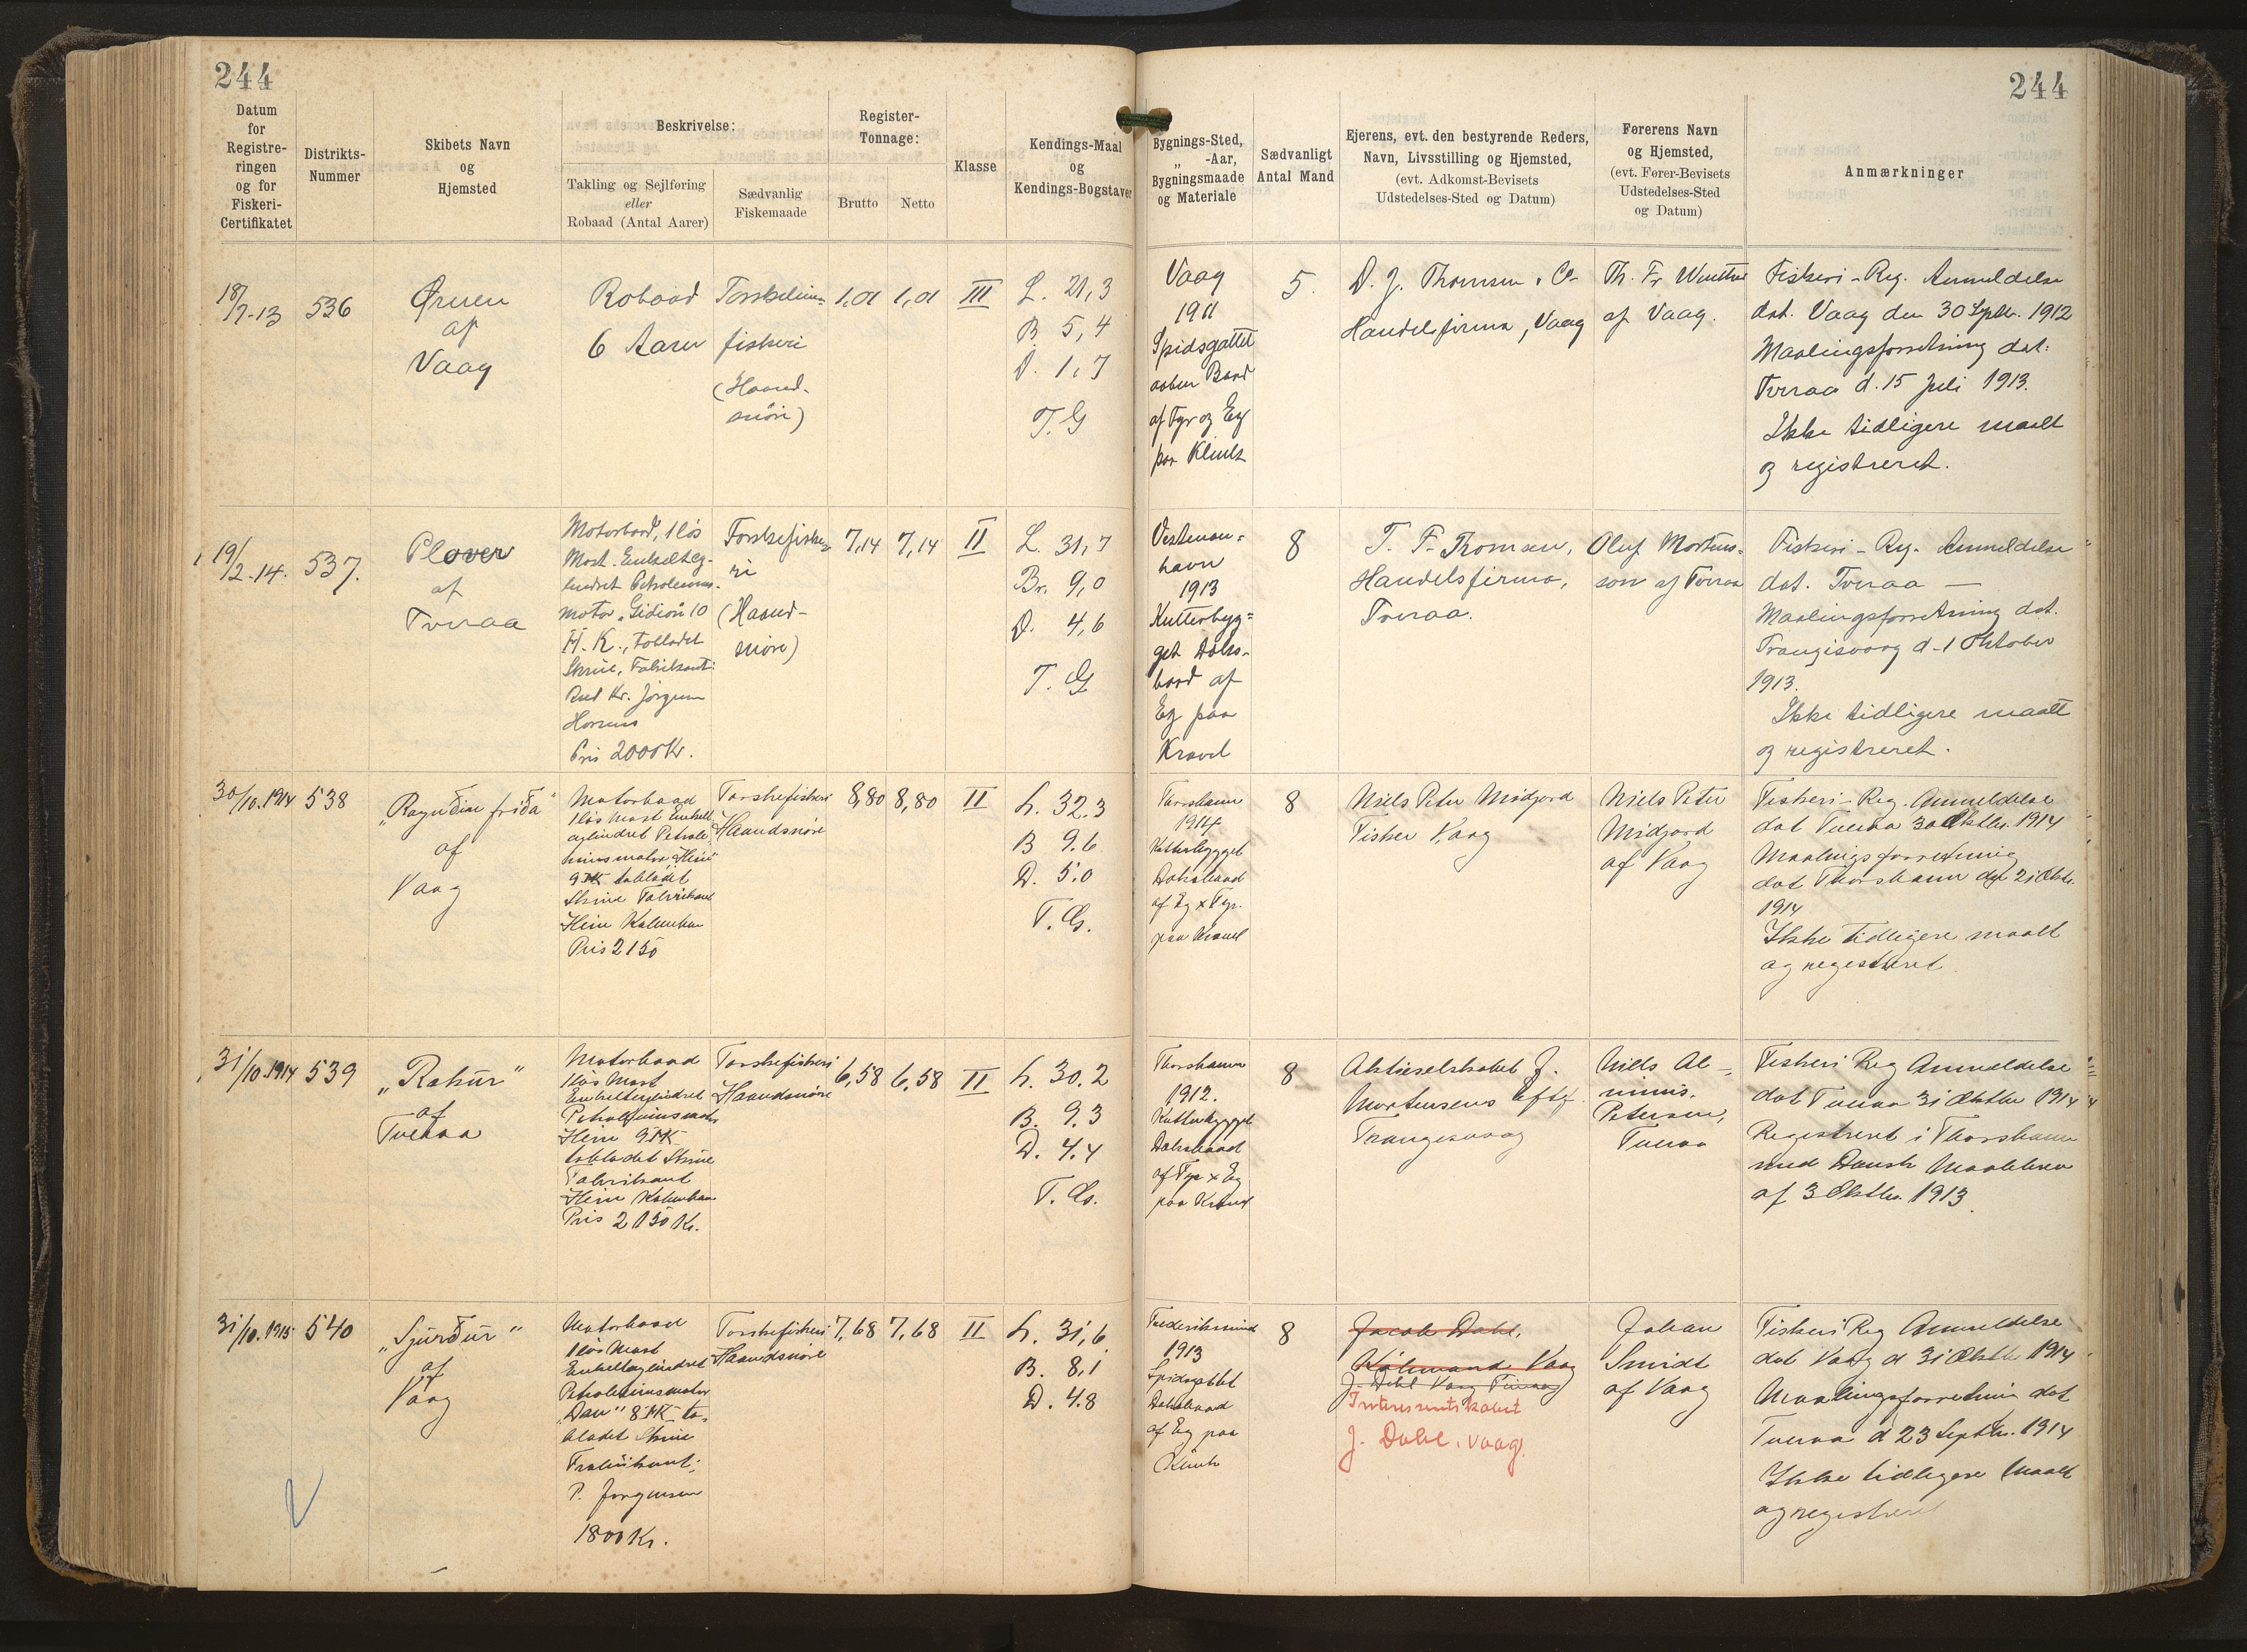 244
244
Datum
for
Registre-
ringen
og for
Fiskeri-
Certifikatet
Distrikts-
Nummer
Skibets Navn
og
Hjemsted
Beskrivelse:
Takling og Sejlføring
eller
Robaad (Antal Aarer)
Sædvanlig
Fiskemaade
Register-
Tonnage:
Brutto
Netto
Klasse
Kendings-Maal
og
Kendings-Bogstaver
Bygnings-Sted,
„ -Aar,
Bygningsmaade
og Materiale
Sædvanligt
Antal Mand
Ejerens, evt. den bestyrende Reders,
Navn, Livsstilling og Hjemsted,
(evt. Adkomst-Bevisets
Udstedelses-Sted og Datum)
Førerens Navn
og Hjemsted,
(evt. Fører-Bevisets
Udstedelses-Sted
og Datum)
Anmærkninger
18/7-13
536
Ørnen
af
Vaag
Robaad
6 Aarer
fiskeri
(Haand-
snøre)
1,01
1,01
III
L. 21,3
B 5,4
D. 1,7
T. G
Vaag
1911
Spidsgattet
aaben Baad
af Fyr og Eg
paa Klink
5.
D. J. Thomsen & Co
Handelsfirma, Vaag
Th. Fr.
af Vaag.
Fiskeri-Reg. Anmeldelse
dat. Vaag den 30 Sptbr. 1912
Maalingsforretning dat.
Tveraa d. 15 Juli 1913.
Ikke tidligere maalt
og registreret.
19/2-14.
537.
Plover
af
Tveraa
Motorbaad, 1 løs
Mast. Enkeltcy-
lindret Petroleums-
motor „Gideon" 10
H. K., tobladet
Skrue, Fabrikant:
Rud Kr. Jørgensen
Horsens
Pris 2000 Kr.
Torskefiske-
ri
(Haand-
snøre)
7,14
7,14
II
L. 31,7
Br. 9,0
D. 4,6
T. G
Vestman-
havn
1913
Kutterbyg-
get Dæks-
baad af
Eg paa
Kravel
8
T. F. Thomsen,
Handelsfirma,
Tveraa.
Oluf Mortens-
son af Tveraa
Fiskeri-Reg. Anmeldelse
dat. Tveraa —
Maalingsforretning dat.
Trangisvaag d. 1 Oktober
1913.
Ikke tidligere maalt
og registreret.
30/10.1914
538
af
Vaag
Motorbaad
1 løs Mast Enkelt
cylindret Petrole-
umsmotor „Hein"
9 HK tobladet
Skrue Fabrikant
Hein København
Pris 2150
Torskefiskeri
Haandsnøre
8,80
8,80
II
L. 32.3
B 9.6
D. 5.0
T. G.
Thorshavn
1914
Kutterbygget
Dæksbaad
af Eg & Fyr.
paa Kravel
8
Niels Peter Midjord
Fisker Vaag
Niels Peter
Midjord
af Vaag
Fiskeri-Reg. Anmeldelse
dat Tveraa 30 Oktbr. 1914
Maalingsforretning
dat Thorshavn den 21 Oktbr.
1914
Ikke tidligere maalt
og registreret
31/10.1914
539
„Røkur"
af
Tveraa
Motorbaad
1 løs Mast
Enkeltcylindret
Petroleumsmotor
Hein 9 HK
tobladet Skrue
Fabrikant
Hein København
Pris 2150 Kr.
Torskefiskeri
Haandsnøre
6,58
6,58
II
L. 30.2
B. 9.3
D. 4.4
T. G.
Thorshavn
1912.
Kutterbygget
Dæksbaad
af Fyr & Eg
paa Kravel
8
Aktieselskabet J.
Mortensens Eftf.
Trangisvaag
Niels
Petersen,
Tveraa
Fiskeri Reg Anmeldelse
dat Tveraa 31 Oktbr 1914
Registreret i Thorshavn
med Dansk Maalebrev
af 3 Oktbr. 1913
31/10.1915
540
„Sjúrður"
af
Vaag
Motorbaad
1 løs Mast
Enkeltcylindret
Petroleumsmotor
„Dan" 8 HK to-
bladet Skrue
Fabrikant:
P. Jørgensen
1800 Kr.
Torskefiskeri
Haandsnøre
7,68
7,68
II
L. 31,6
B. 8,1
D. 4.8
Frederikssund
1913
Spidsgattet
Dæksbaad
af Eg paa
Klink
8
Jacob Dahl,
Købmand Vaag
J. Dahl Vaag
Interessentskabet
J. Dahl, Vaag.
Johan
Smidt
af Vaag
Fiskeri Reg Anmeldelse
dat Vaag d 31 Oktbr 1914
Maalingsforretning dat
Tveraa d 23 Septbr. 1914
Ikke tidligere maalt
og registreret